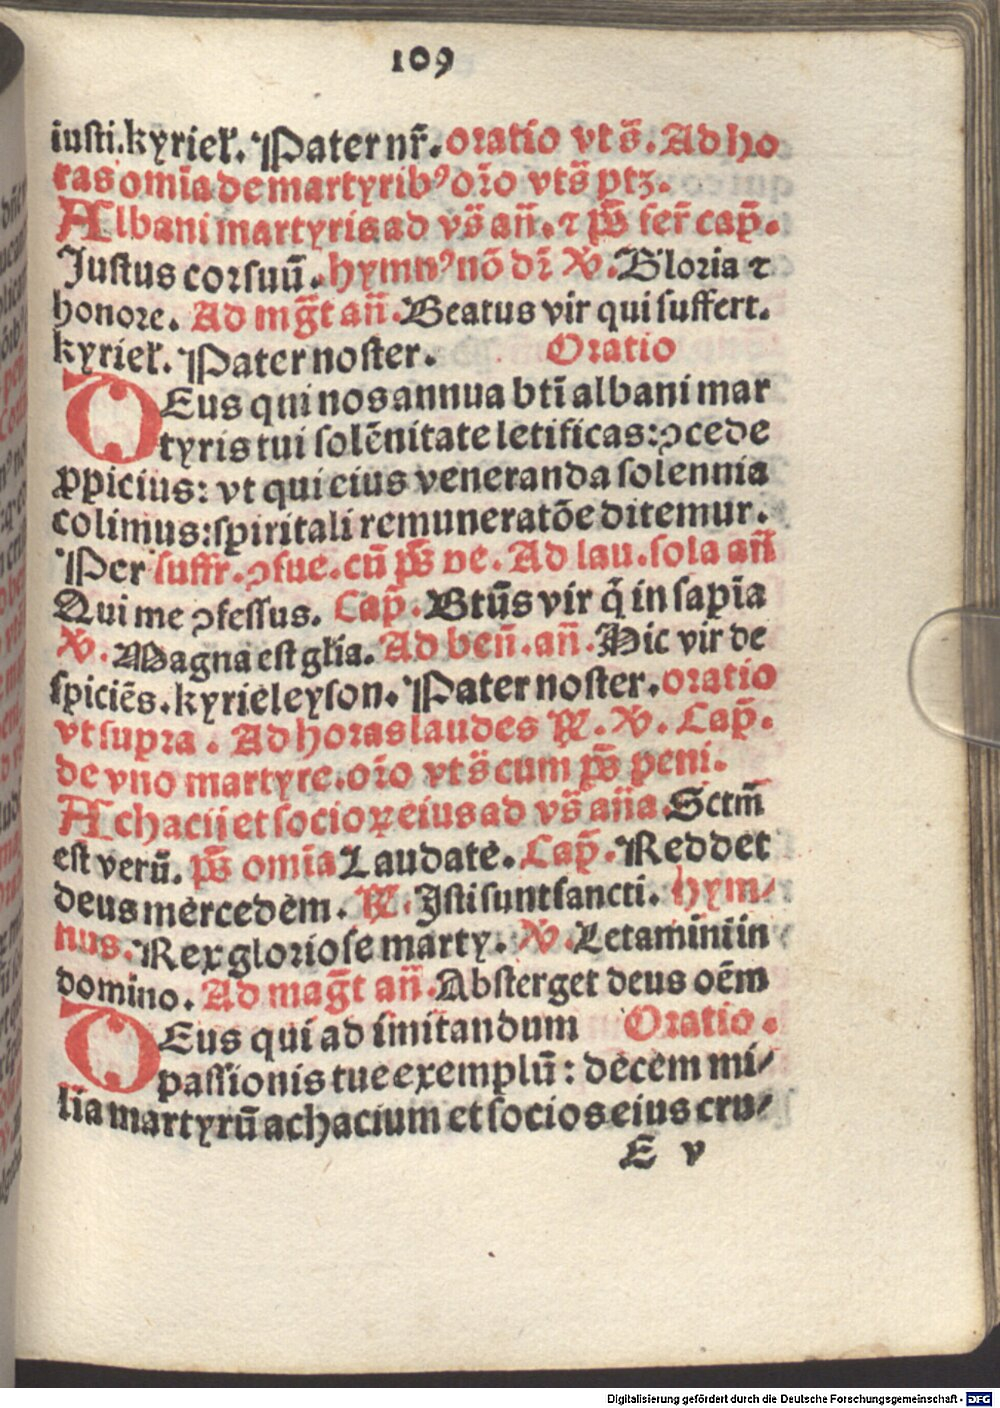 109
iusti.kyriel̄. Pater nr̄. oratio vt s̄. Ad ho
ras om̄ia de martyribꝰ or̄o vt s̄ ptꝫ.
Albani martyris ad vs̄ an̄. ⁊ ps̄ fer̄ cap̄.
Justus cor suū. hymnꝰ nō dr̄ ℣. Gloria ⁊
honore. Ad mḡt an̄. Beatus vir qui suffert.
kyriel̄. Pater noster. Oratio
DEus qui nos annua bti̅ albani mar
tyris tui solēnitate letificas: ꝯcede
ꝓpicius: vt qui eius veneranda solennia
colimus: spiritali remuneratōe ditemur.
Per suffr. ꝯsue. cū ps̄ ve. Ad lau. sola an̄
Qui me ꝯfessus. Cap̄. Btūs vir q̄ in sapīa
℣. Magna est gl̄ia. Ad ben̄. an̄. Hic vir de
spiciēs. kyrieleyson. Pater noster. oratio
vt supra. Ad horas laudes ℟. ℣. Cap̄.
de vno martyre. or̄o vt s̄ cum ps̄ peni.
Achacij et socioꝝ eius ad vs̄ an̄a Sctm̄
est verū. ps̄ om̄ia Laudate. Cap̄. Reddet
deus mercedem. ℟. Isti sunt sancti. hym⸗
nus. Rex gloriose marty. ℣. Letamini in
domino. Ad maḡt an̄. Absterget deus oēm
DEus qui ad imitandum Oratio.
passionis tue exemplū: decem mi⸗
lia martyrū achacium et socios eius cru⸗
E v
Digitalisierung gefördert durch die Deutsche Forschungsgemeinschaft - DFG